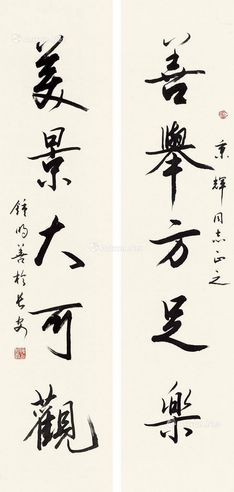 善舉方足樂
秉輝同志正之
美景大可觀
鍾明善於長安